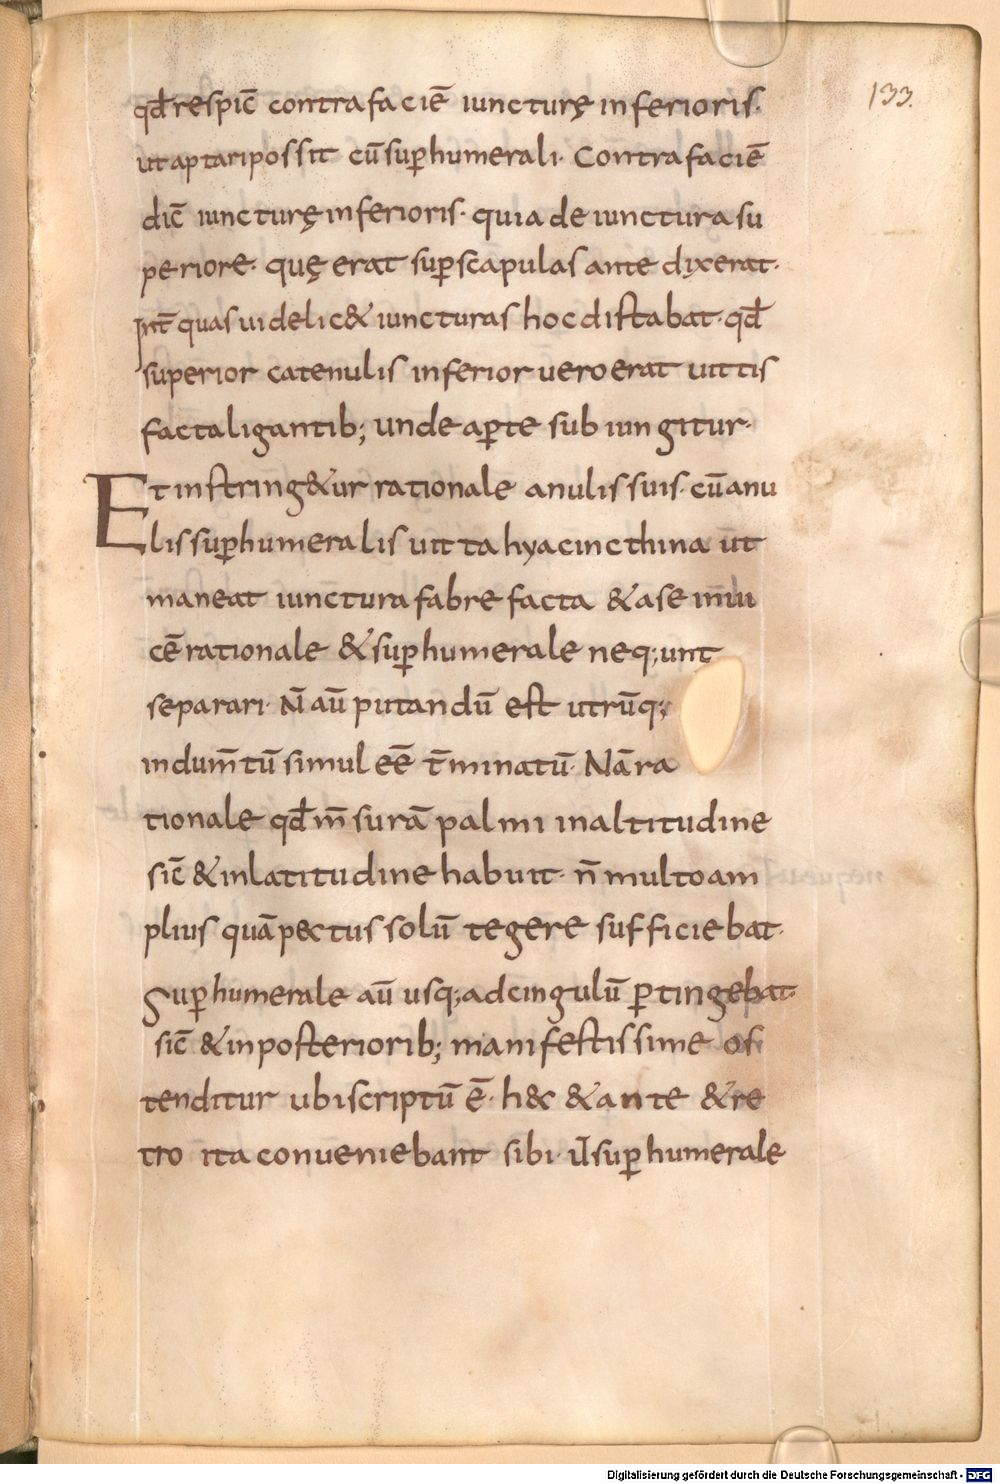 133.
qđ respic̄ contra faciē iuncturę inferioris.
ut aptari possit cū suꝑhumerali. Contra faciē
dic̄ iuncturę inferioris. quia de iunctura su
periore. quę erat suꝑ scapulas ante dixerat.
Int̄ quas uidelic& iuncturas hoc distabat. qđ
superior catenulis inferior uero erat uittis
facta ligantib; unde aꝑte subiungitur.
Et instring&ur rationale anulis suis. cū anu
lis suꝑhumeralis uitta hyacincthina ut
maneat iunctura fabrefacta & a se inuı
cē rationale & suꝑhumerale neq; unt
separari. N̄ aū putandū est utrūq;
indum̄tū simul eē t̄minatū. Nā ra
tionale qđ m̄surā palmi in altitudine
sic̄ & in latitudine habuit. n̄ multo am
plius quā pectus solū tegere sufficiebat.
Suꝑhumerale aū usq; ad cingulū ꝑtingebat.
sic̄ & in posteriorib; manifestissime os
tenditur ubi scriptū ē. hęc & ante & re
tro ita conueniebant sibi. ut̄ suꝑhumerale
Digitalisierung gefördert durch die Deutsche Forschungsgemeinschaft - DFG